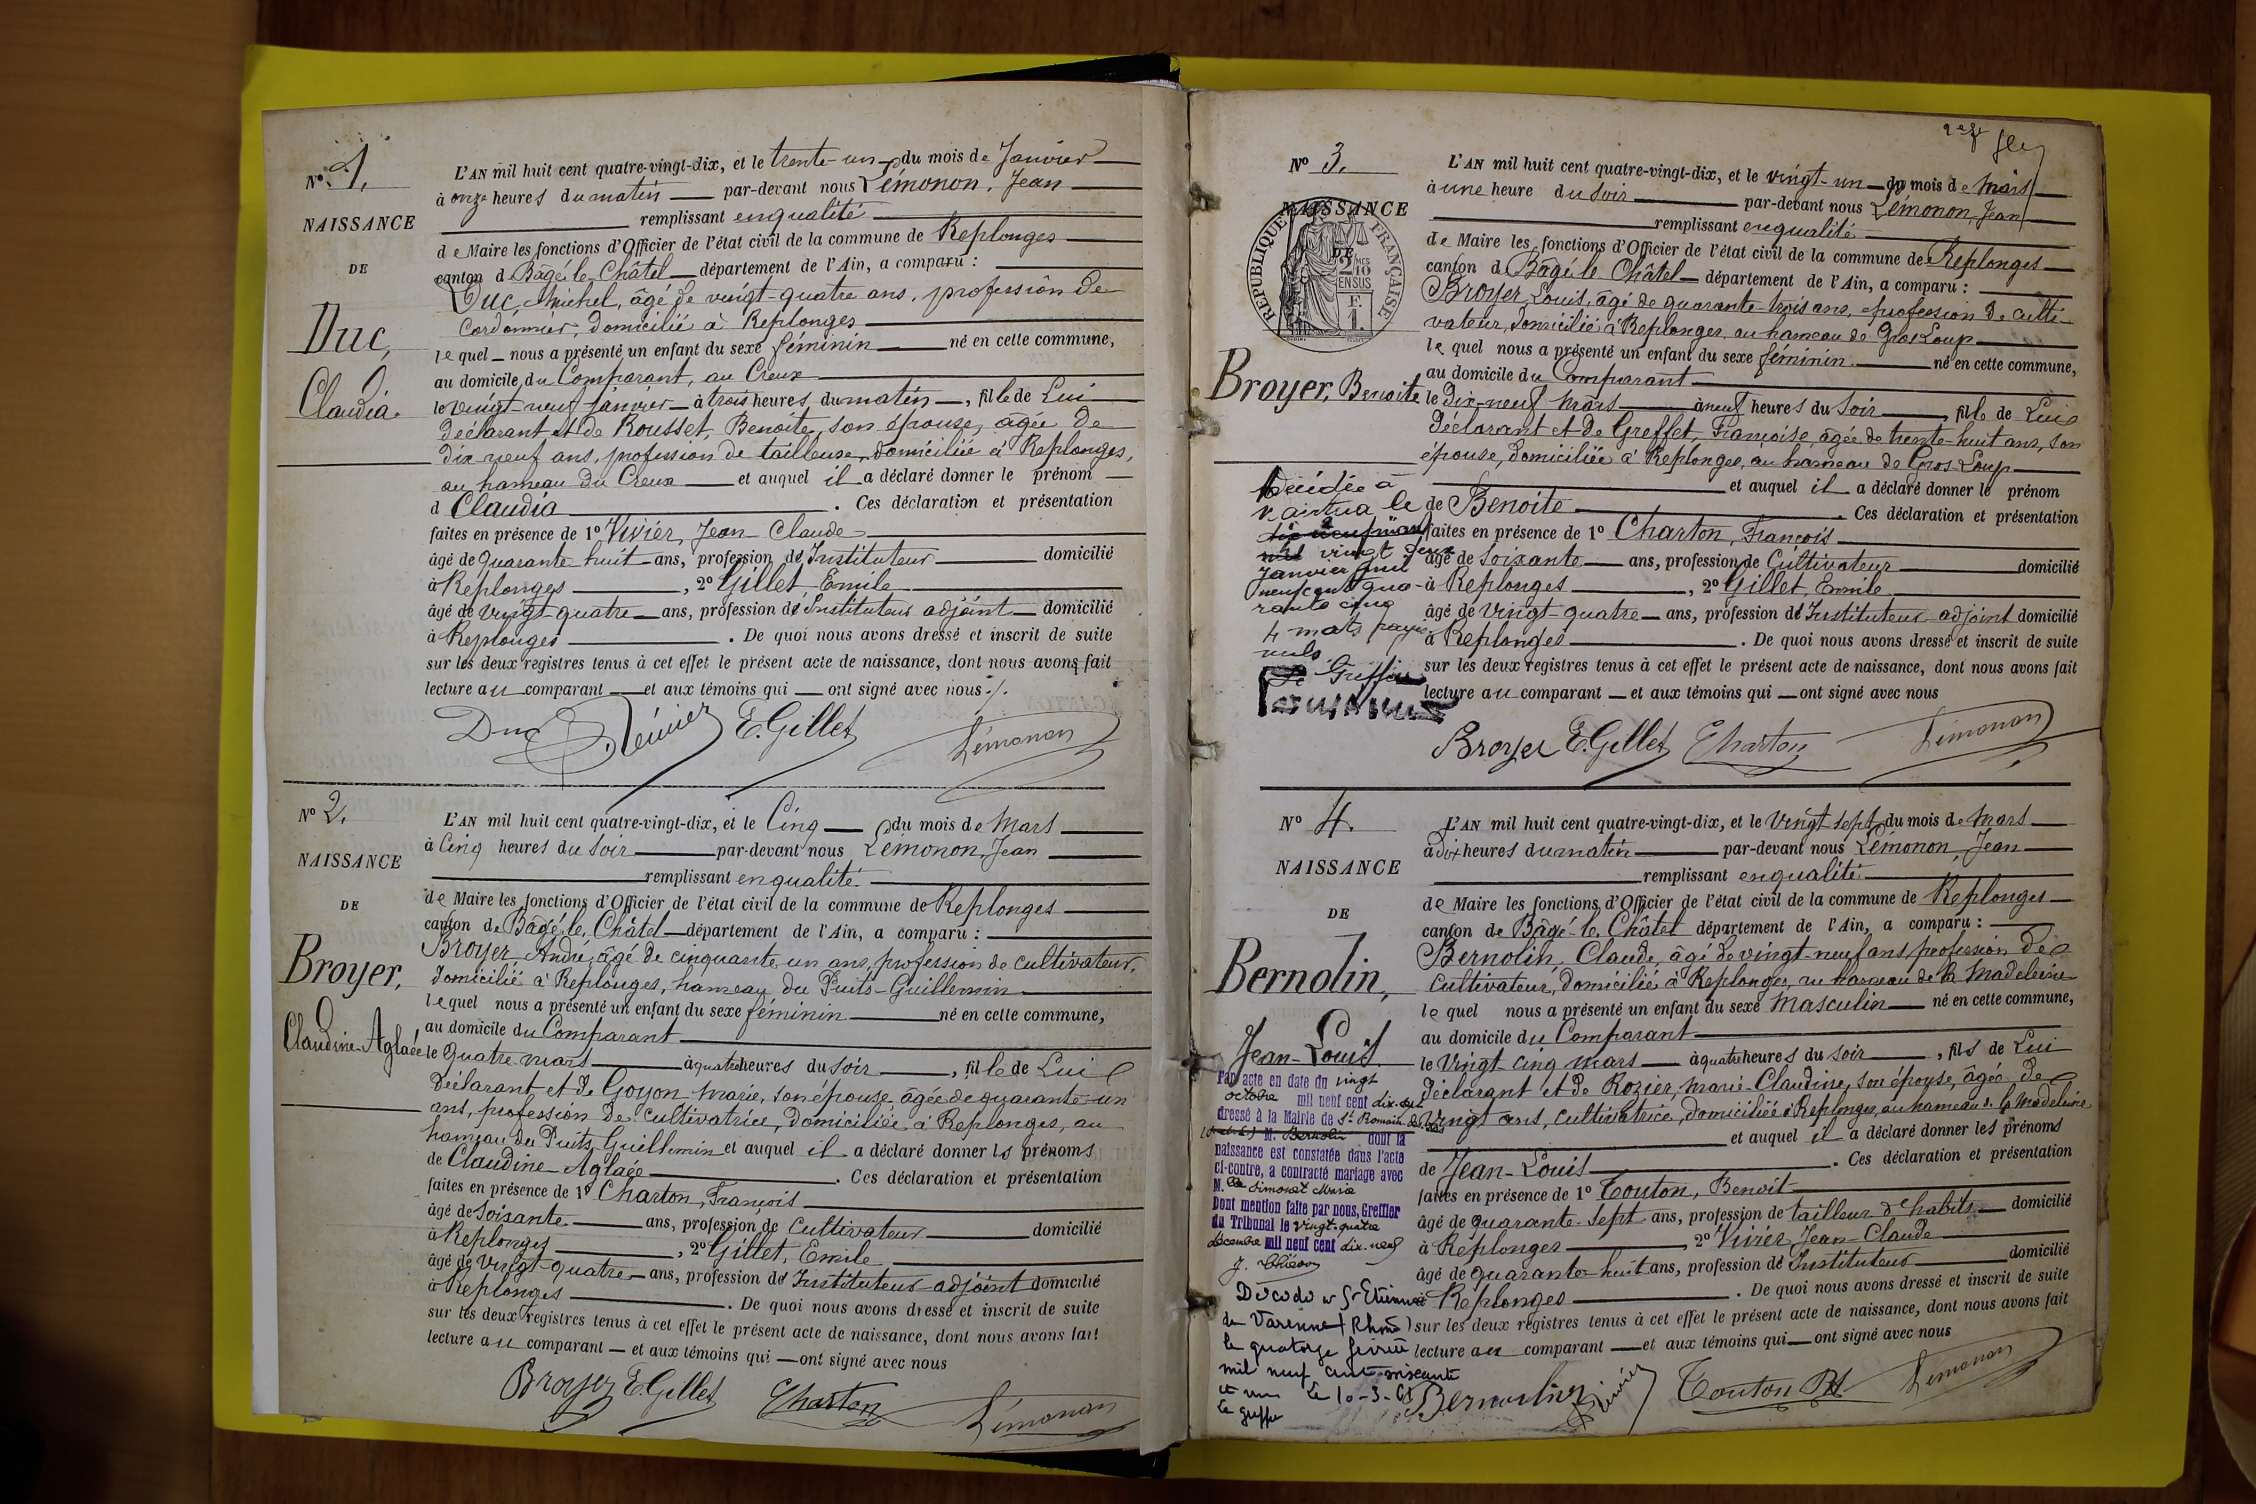 No. 1.
NAISSANCE
DE
Duc,
Claudia.
L'AN mil huit cent quatre-vingt-dix, et le trente-un du mois de Janvier
à onze heures du matin par-devant nous Lémonon, Jean
remplissant en qualité
de Maire les fonctions d'Officier de l'état civil de la commune de Replonges
canton d Bâgé-le-Châtel département de l'Ain, a comparu :
Duc, Michel, âgé de vingt-quatre ans, profession de
Cordonnier, domicilié à Replonges
lequel nous a présenté un enfant du sexe féminin né en cette commune,
au domicile du Comparant, au Creux
le vingt-neuf janvier à trois heures du matin, fille de Lui
Déclarant et de Rousset, Benoite, son épouse, âgée de
dix neuf ans, profession de tailleuse, domiciliée à Replonges,
au hameau du Creux et auquel il a déclaré donner le prénom
d Claudia. Ces déclaration et présentation
faites en présence de 1º Vivier, Jean-Claude
âgé de Quarante huit ans, profession de Instituteur domicilié
à Replonges, 2º Gillet, Emile
âgé de vingt-quatre ans, profession de Instituteur adjoint domicilié
à Replonges. De quoi nous avons dressé et inscrit de suite
sur les deux registres tenus à cet effet le présent acte de naissance, dont nous avons fait
lecture au comparant et aux témoins qui ont signé avec nous ./.
Duc Vivier E. Gillet Lémonon
No 2.
NAISSANCE
DE
Broyer,
Claudine-Aglaée
L'AN mil huit cent quatre-vingt-dix, et le Cinq du mois de Mars
à Cinq heures du soir par-devant nous Lémonon, Jean
remplissant en qualité
de Maire les fonctions d'Officier de l'état civil de la commune de Replonges
canton de Bâgé-le-Châtel département de l'Ain, a comparu :
Broyer, André, âgé de cinquante-un ans, profession de cultivateur,
domicilié à Replonges, hameau du Puits-Guillemin
lequel nous a présenté un enfant du sexe féminin né en cette commune,
au domicile du Comparant
le quatre mars à quatre heures du soir, fille de Lui
déclarant et de Goyon Marie, son épouse âgée de quarante-un
ans, profession de cultivatrice, domiciliée à Replonges, au
hameau du Puits Guillemin et auquel il a déclaré donner les prénoms
de Claudine-Aglaée. Ces déclaration et présentation
faites en présence de 1º Charton, François
âgé de soixante ans, profession de cultivateur domicilié
à Replonges, 2º Gillet, Emile
âgé de vingt-quatre ans, profession de Instituteur-adjoint domicilié
à Replonges. De quoi nous avons dressé et inscrit de suite
sur les deux registres tenus à cet effet le présent acte de naissance, dont nous avons fait
lecture au comparant et aux témoins qui ont signé avec nous
Broyer E. Gillet Charton Lémonon
No 3.
NAISSANCE
DE
RÉPUBLIQUE FRANÇAISE
2 MES
10
EN SUS
Broyer, Benoite
L'AN mil huit cent quatre-vingt-dix, et le vingt-un du mois de Mars
à une heure du soir par-devant nous Lémonon, Jean
remplissant en qualité
de Maire les fonctions d'Officier de l'état civil de la commune de Replonges
canton d Bâgé le Châtel département de l'Ain, a comparu :
Broyer, Louis, âgé de quarante-trois ans, profession de culti-
vateur, domicilié à Replonges, au hameau de Gros Loup
lequel nous a présenté un enfant du sexe féminin né en cette commune,
au domicile du Comparant
le dix-neuf Mars à neuf heures du soir, fille de Lui
Déclarant et de Greffet, Françoise, âgée de trente-huit ans, son
épouse, domiciliée à Replonges, au hameau de Gros-Loup
et auquel il a déclaré donner le prénom
de Benoite. Ces déclaration et présentation
faites en présence de 1º Charton, François
âgé de soixante ans, profession de Cultivateur domicilié
à Replonges, 2º Gillet, Emile
âgé de vingt-quatre ans, profession de Instituteur-adjoint domicilié
à Replonges. De quoi nous avons dressé et inscrit de suite
sur les deux registres tenus à cet effet le présent acte de naissance, dont nous avons fait
lecture au comparant et aux témoins qui ont signé avec nous
Décédée à
le
vingt deux
janvier mil
neuf cent qua-
rante cinq
4 mots rayés
nuls
Le Greffier
Broyer E. Gillet Charton Lémonon
No 4.
NAISSANCE
DE
Bernolin,
Jean-Louis
L'AN mil huit cent quatre-vingt-dix, et le vingt-sept du mois de Mars
à dix heures du matin par-devant nous Lémonon, Jean
remplissant en qualité
de Maire les fonctions d'Officier de l'état civil de la commune de Replonges
canton de Bâgé-le-Châtel département de l'Ain, a comparu :
Bernolin, Claude, âgé de vingt-neuf ans, profession de
Cultivateur, domicilié à Replonges, au hameau de la Madeleine
lequel nous a présenté un enfant du sexe Masculin né en cette commune,
au domicile du Comparant
le Vingt cinq mars à quatre heures du soir, fils de Lui
Déclarant et de Rozier, Marie-Claudine, son épouse, âgée de
vingt ans, cultivatrice, domiciliée à Replonges, au hameau de la Madeleine
et auquel il a déclaré donner les prénoms
de Jean-Louis. Ces déclaration et présentation
faites en présence de 1º Touton, Benoit
âgé de quarante-sept ans, profession de tailleur d'habits domicilié
à Replonges, 2º Vivier, Jean-Claude
âgé de quarante-huit ans, profession de Instituteur domicilié
à Replonges. De quoi nous avons dressé et inscrit de suite
sur les deux registres tenus à cet effet le présent acte de naissance, dont nous avons fait
lecture au comparant et aux témoins qui ont signé avec nous
Par acte en date du vingt
octobre mil neuf cent dix-neuf
dressé à la Mairie de St Romain
M. Bernolin dont la
naissance est constatée dans l'acte
ci-contre, a contracté mariage avec
M. Simonet Marie
Dont mention faite par nous, Greffier
du Tribunal le vingt-quatre
décembre mil neuf cent dix-neuf
Décédé à St Etienne
la Varenne (Rhône)
le quatorze février
mil neuf cent soixante
et un Le 10-3-61
Le greffier
Bernoulin Vivier Touton Bt Lémonon